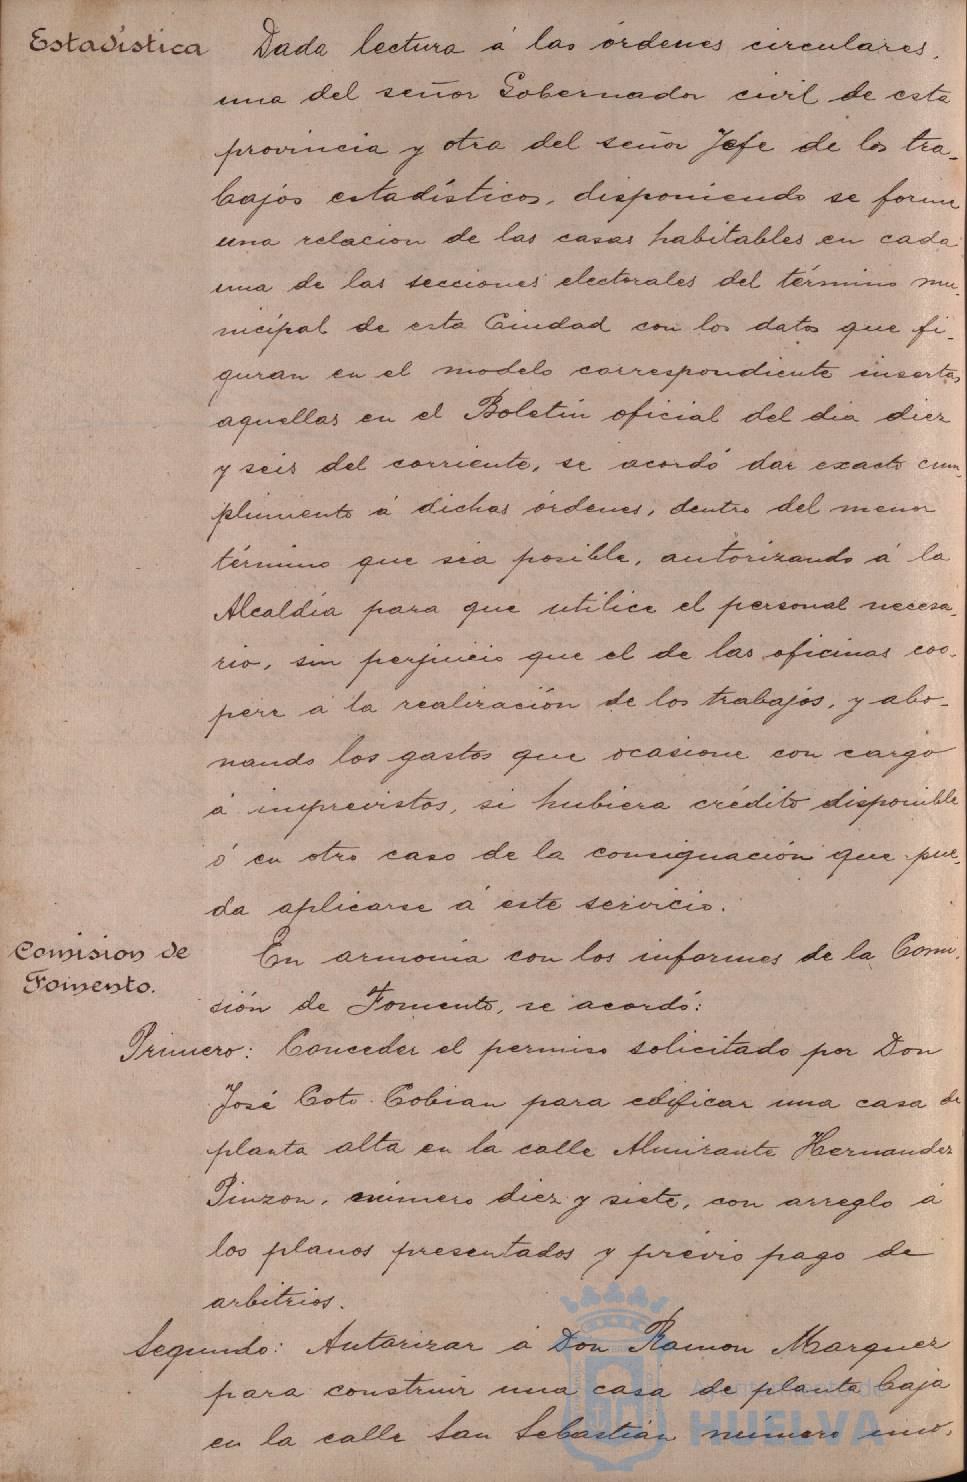 Estadística
Dada lectura á las órdenes circulares,
una del señor Gobernador civil de esta
provincia y otra del señor Jefe de los tra-
bajos estadísticos, disponiendo se forme
una relacion de las casas habitables en cada
una de las secciones electorales del término mu-
nicipal de esta Ciudad con los datos que fi-
guran en el modelo correspondiente insertas
aquellas en el Boletín oficial del dia diez
y seis del corriente, se acordó dar exacto cum-
plimiento á dichas órdenes, dentro del menor
término que sea posible, autorizando á la
Alcaldía para que utilice el personal necesa-
rio, sin perjuicio que el de las oficinas coo-
pere á la realización de los trabajos, y abo-
nando los gastos que ocasione con cargo
á imprevistos, si hubiera crédito disponible
ó en otro caso de la consignación que pue-
da aplicarse á este servicio.
Comision de
Fomento.
En armonia con los informes de la Comi-
sión de Fomento, se acordó:
Primero: Conceder el permiso solicitado por Don
José Coto Cobian para edificar una casa de
planta alta en la calle Almirante Hernandez
Pinzon, número diez y siete, con arreglo á
los planos presentados y prévio pago de
arbitrios.
Segundo: Autorizar á Don Ramon Marquez
para construir una casa de planta baja
en la calle San Sebastián número uno,
Ayuntamiento de
HUELVA